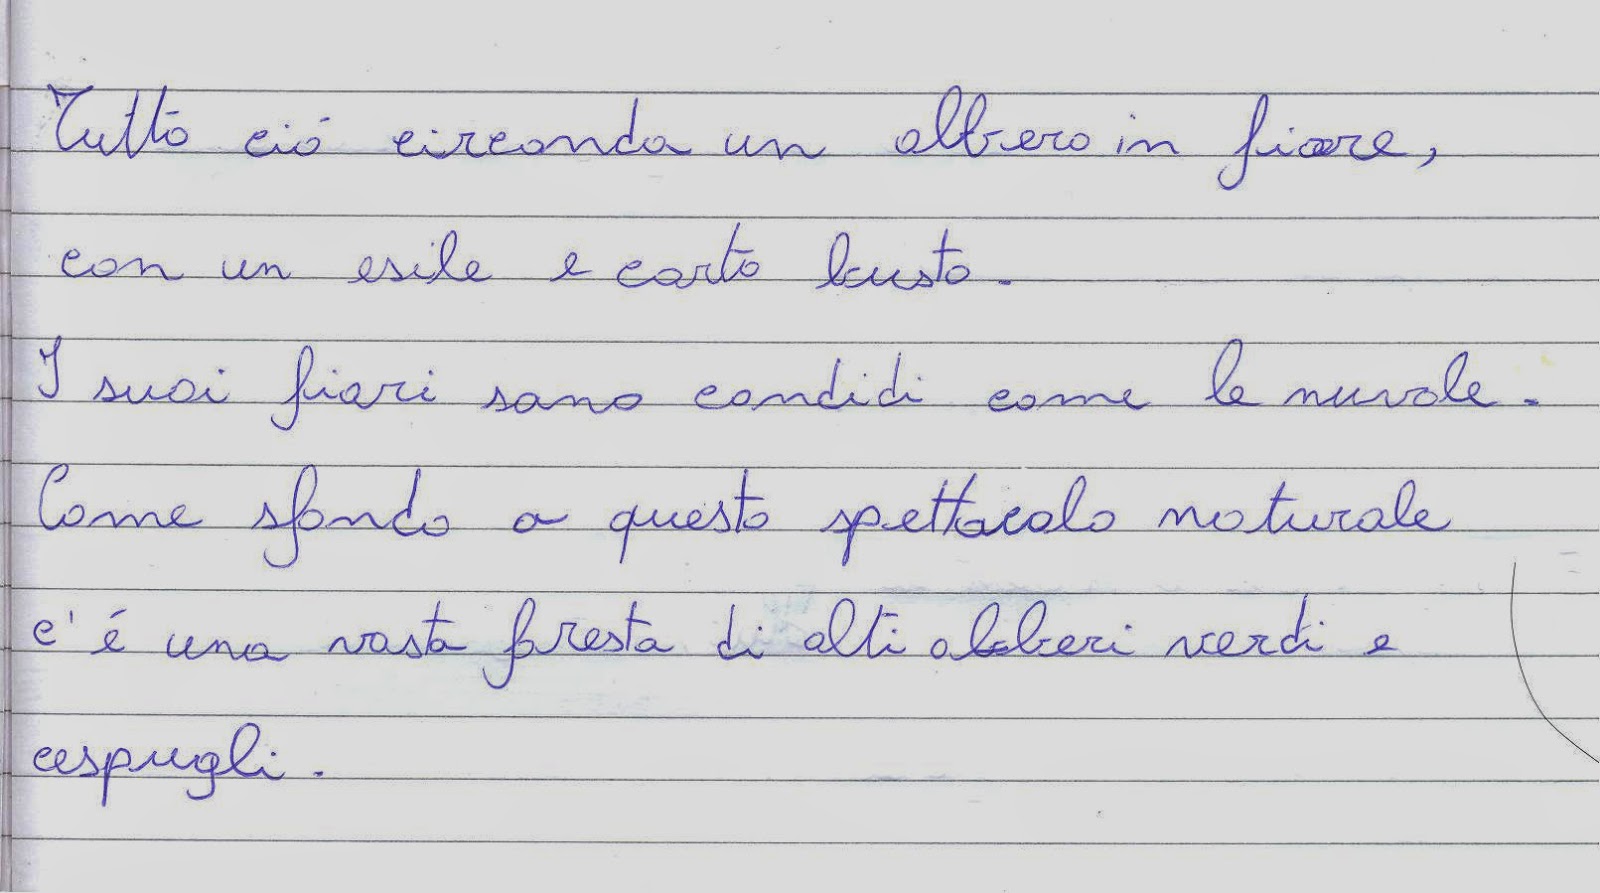 Tutto ció circonda un albero in fiore,
con un esile e corto busto.
I suoi fiori sono candidi come le nuvole.
Come sfondo a questo spettacolo naturale
c'é una vasta foresta di alti alberi verdi e
cespugli.